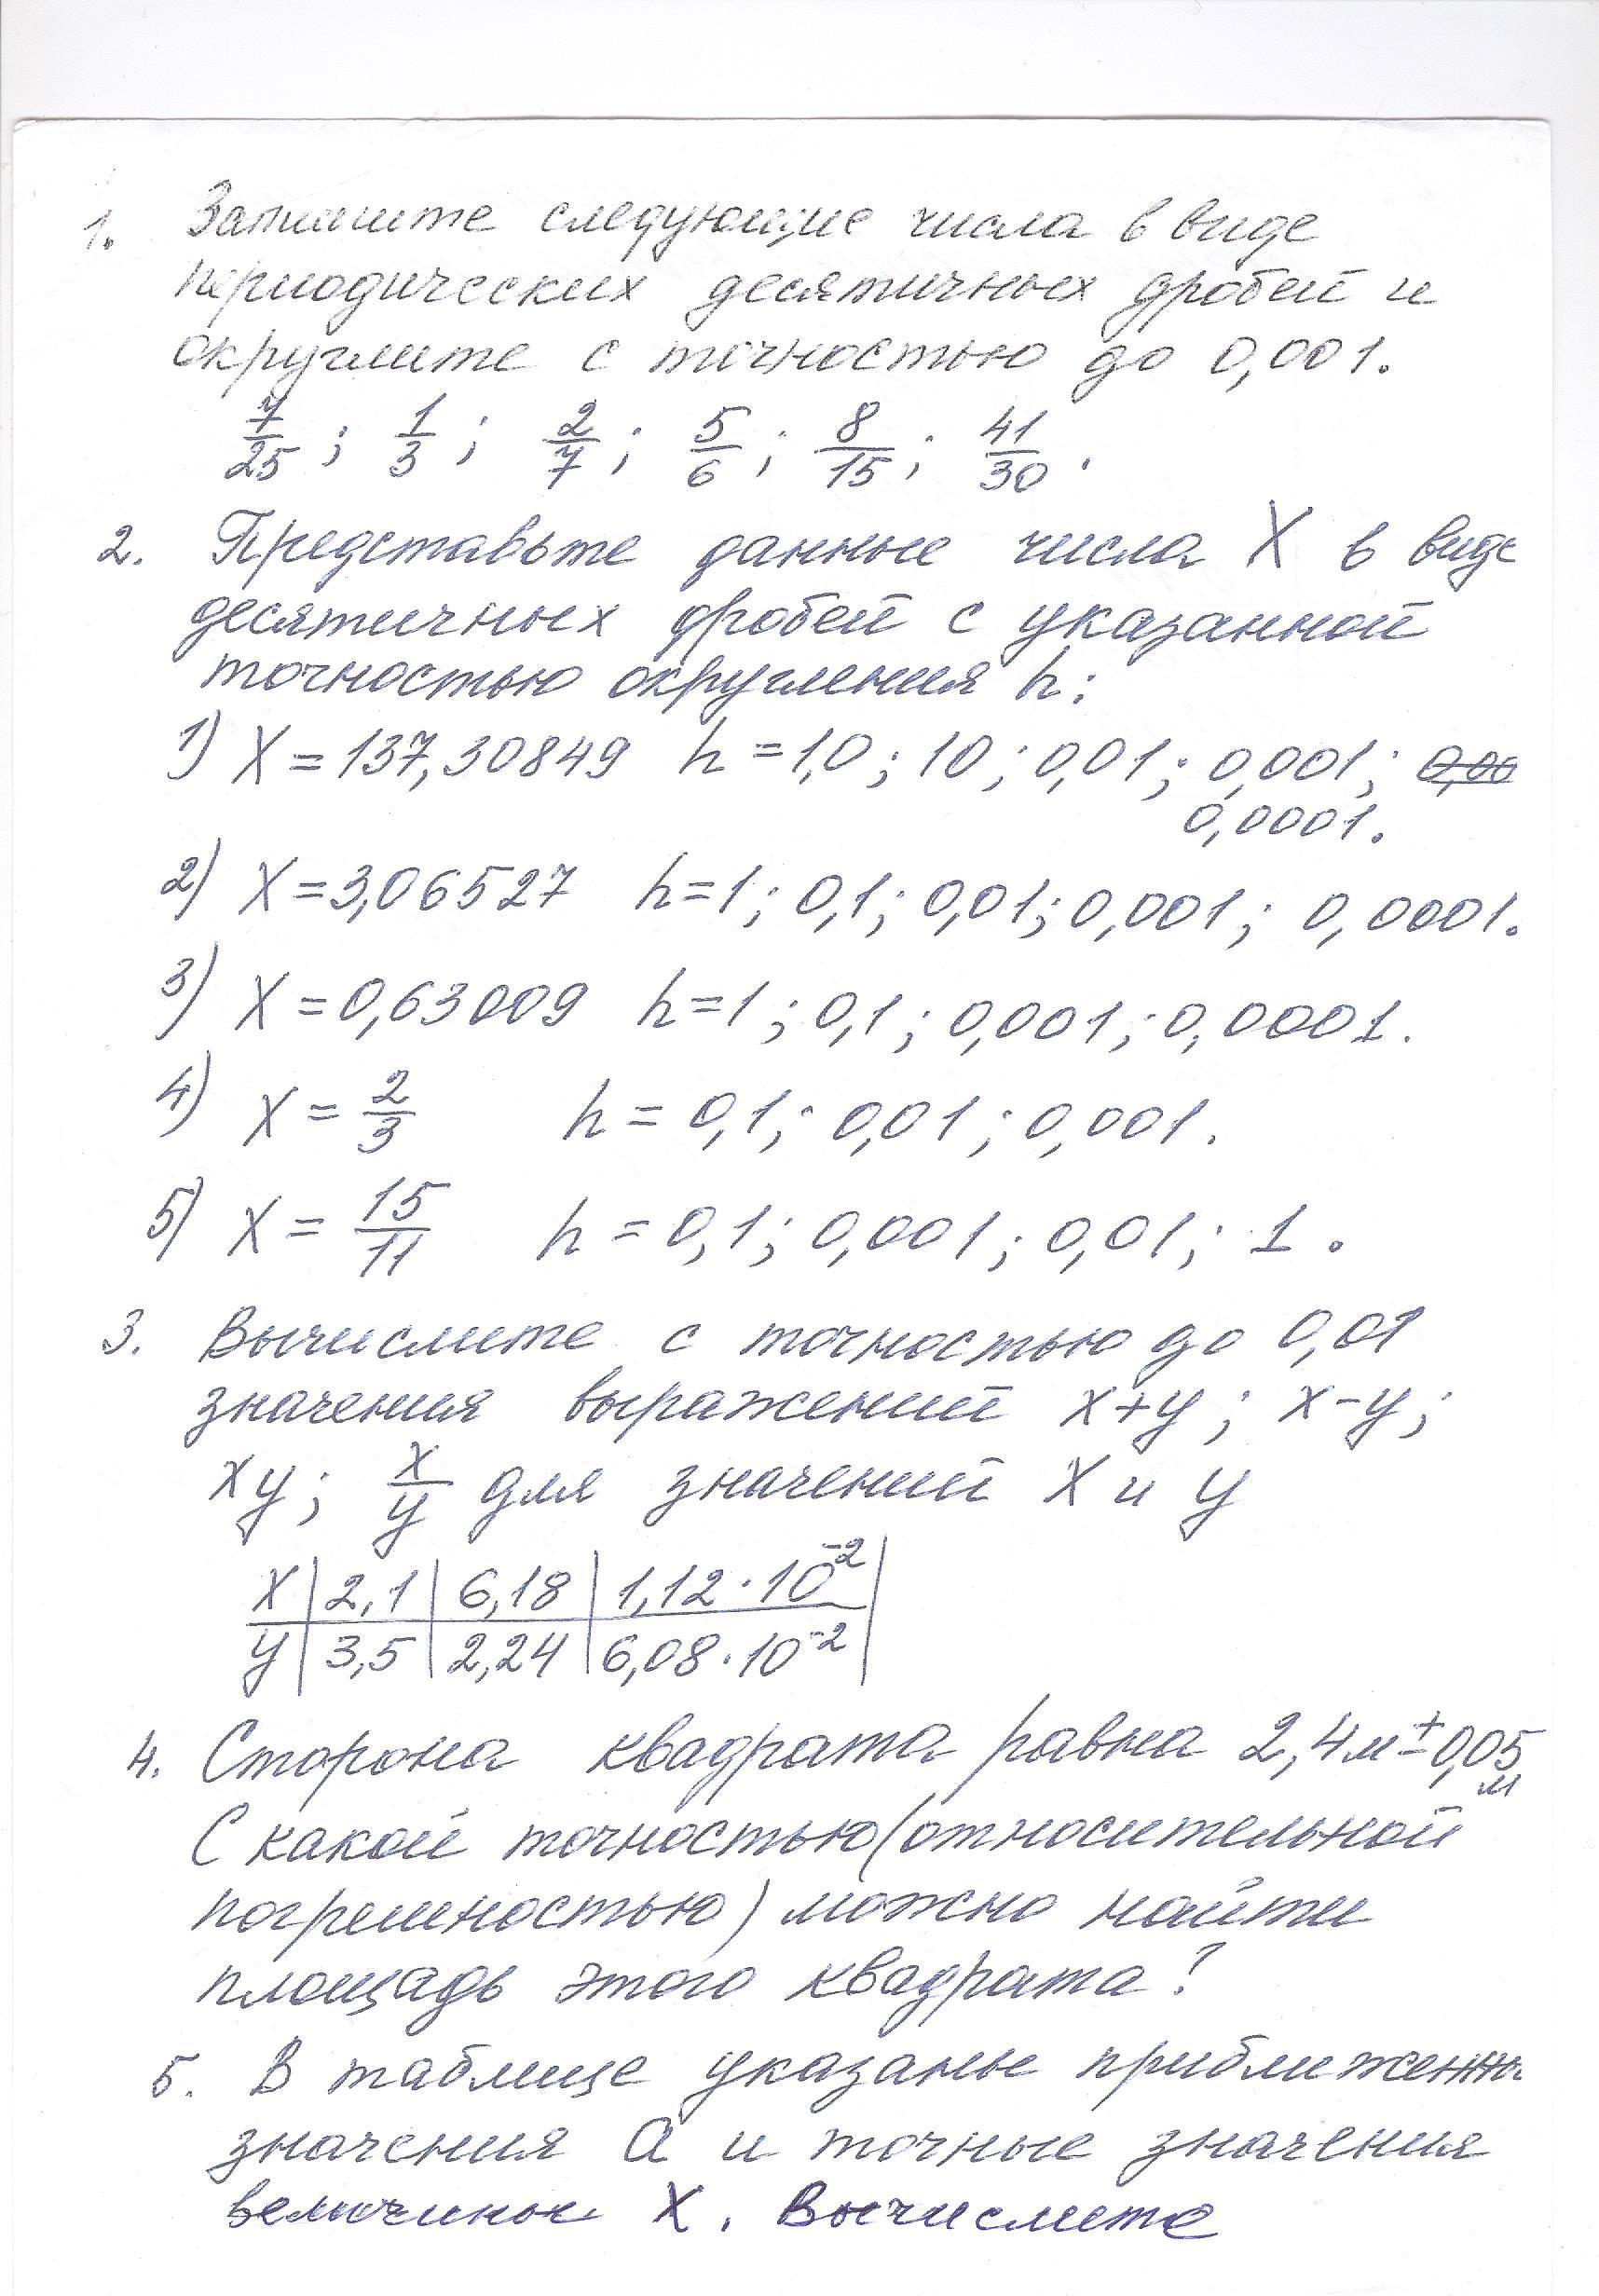 1. Запишите следующие числа в виде
периодических десятичных дробей и
округлите с точностью до 0,001.
7/25 ; 1/3 ; 2/7 ; 5/6 ; 8/15 ; 41/30 .
2. Представьте данные числа X в виде
десятичных дробей с указанной
точностью округления h:
1) X = 137,30849 h = 1,0 ; 10 ; 0,01 ; 0,001 ; 0,00
0,0001.
2) X = 3,06527 h = 1 ; 0,1 ; 0,01 ; 0,001 ; 0,0001.
3) X = 0,63009 h = 1 ; 0,1 ; 0,001 ; 0,0001.
4) X = 2/3 h = 0,1 ; 0,01 ; 0,001.
5) X = 15/11 h = 0,1 ; 0,001 ; 0,01 ; 1 .
3. Вычислите с точностью до 0,01
значения выражений x+y ; x-y ;
xy ; x/y для значений X и У
X | 2,1 | 6,18 | 1,12 · 10⁻² |
У | 3,5 | 2,24 | 6,08 · 10⁻² |
4. Сторона квадрата равна 2,4 м ± 0,05
м
С какой точностью (относительной
погрешностью) можно найти
площадь этого квадрата?
5. В таблице указаны приближенны
значения а и точные значения
величины X. Вычислите